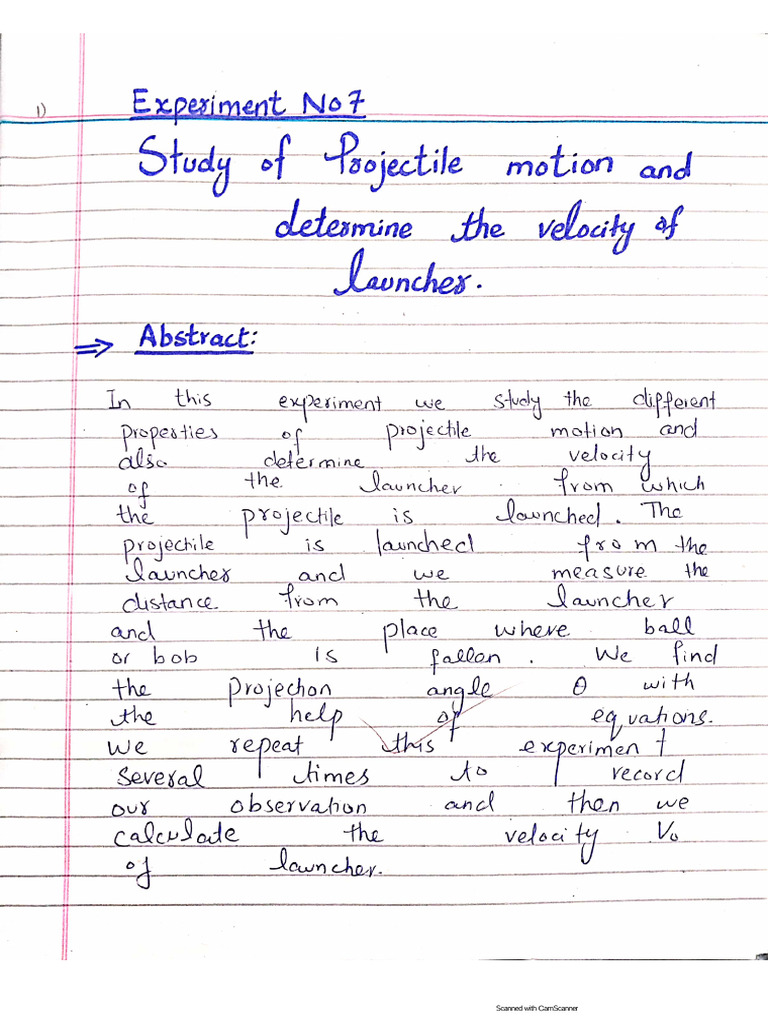 1)
Experiment No 7
Study of Projectile motion and
determine the velocity of
launcher.
⇒ Abstract:
In this experiment we study the different
properties of projectile motion and
also determine the velocity
of the launcher from which
the projectile is launched. The
projectile is launched from the
launcher and we measure the
distance from the launcher
and the place where ball
or bob is fallen. We find
the projection angle θ with
the help of equations.
we repeat this experiment
several times to record
our observation and then we
calculate the velocity Vo
of launcher.
Scanned with CamScanner